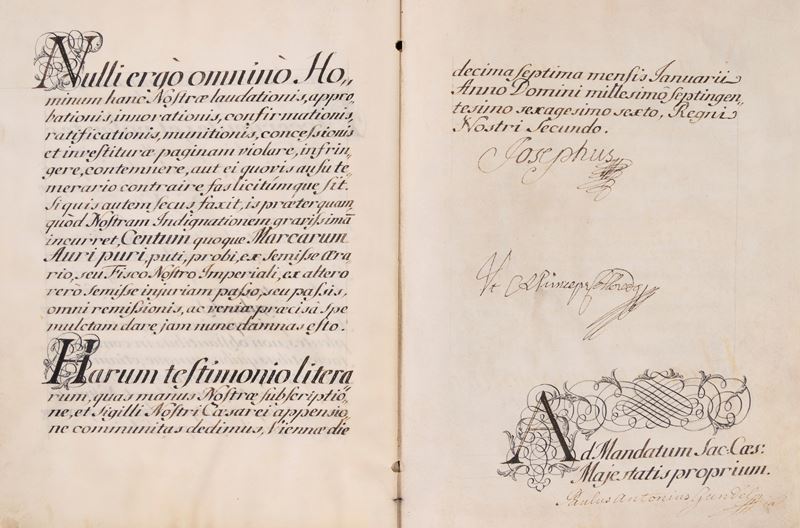 Nulli ergò omninò Ho„
minum hanc Nostræ laudationis, appro„
bationis, innovationis, confirmationis,
ratificationis, munitionis, concessionis
et investituræ paginam violare, infrin„
gere, contemnere, aut ei quovis ausu te„
merario contraire fas licitúmque sit.
Si quis autem secus faxit, is præterquam
quòd Nostram Indignationem gravissimã
incurret, Centum quoque Marcarum
Auri puri, puti, probi, ex Semisse æra„
rio, seu Fisco Nostro Imperiali, ex altero
verò Semisse injuriam passo, seu passis,
omni remissionis, ac veniæ præcisâ spe
mulctam dare jam nunc damnas esto.
Harum testimonio litera„
rum, quas manus Nostræ subscriptio„
ne, et Sigilli Nostri Cæsarei appensio„
ne communitas dedimus, Viennæ die
decima septima mensis Januarii
Anno Domini millesimo Septingen„
tesimo sexagesimo sexto, Regni
Nostri Secundo.
Josephus
Vt
Ad Mandatum Sac: Cæs:
Majestatis proprium.
Paulus Antonius Gundel